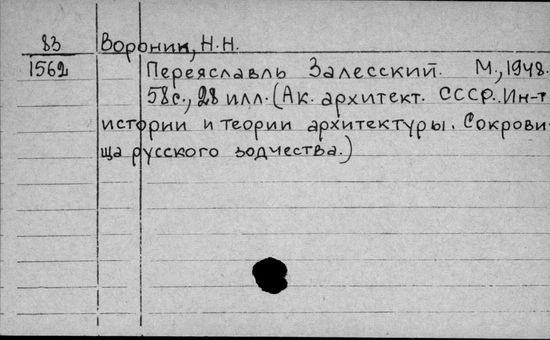 83 Воронин, Н.Н.
1562 Переяславль Залесский. М., 1948.
58с., 28 илл. (Ак. архитект. СССР. Ин-т
истории и теории архитектуры. Сокрови-
ща русского зодчества.)